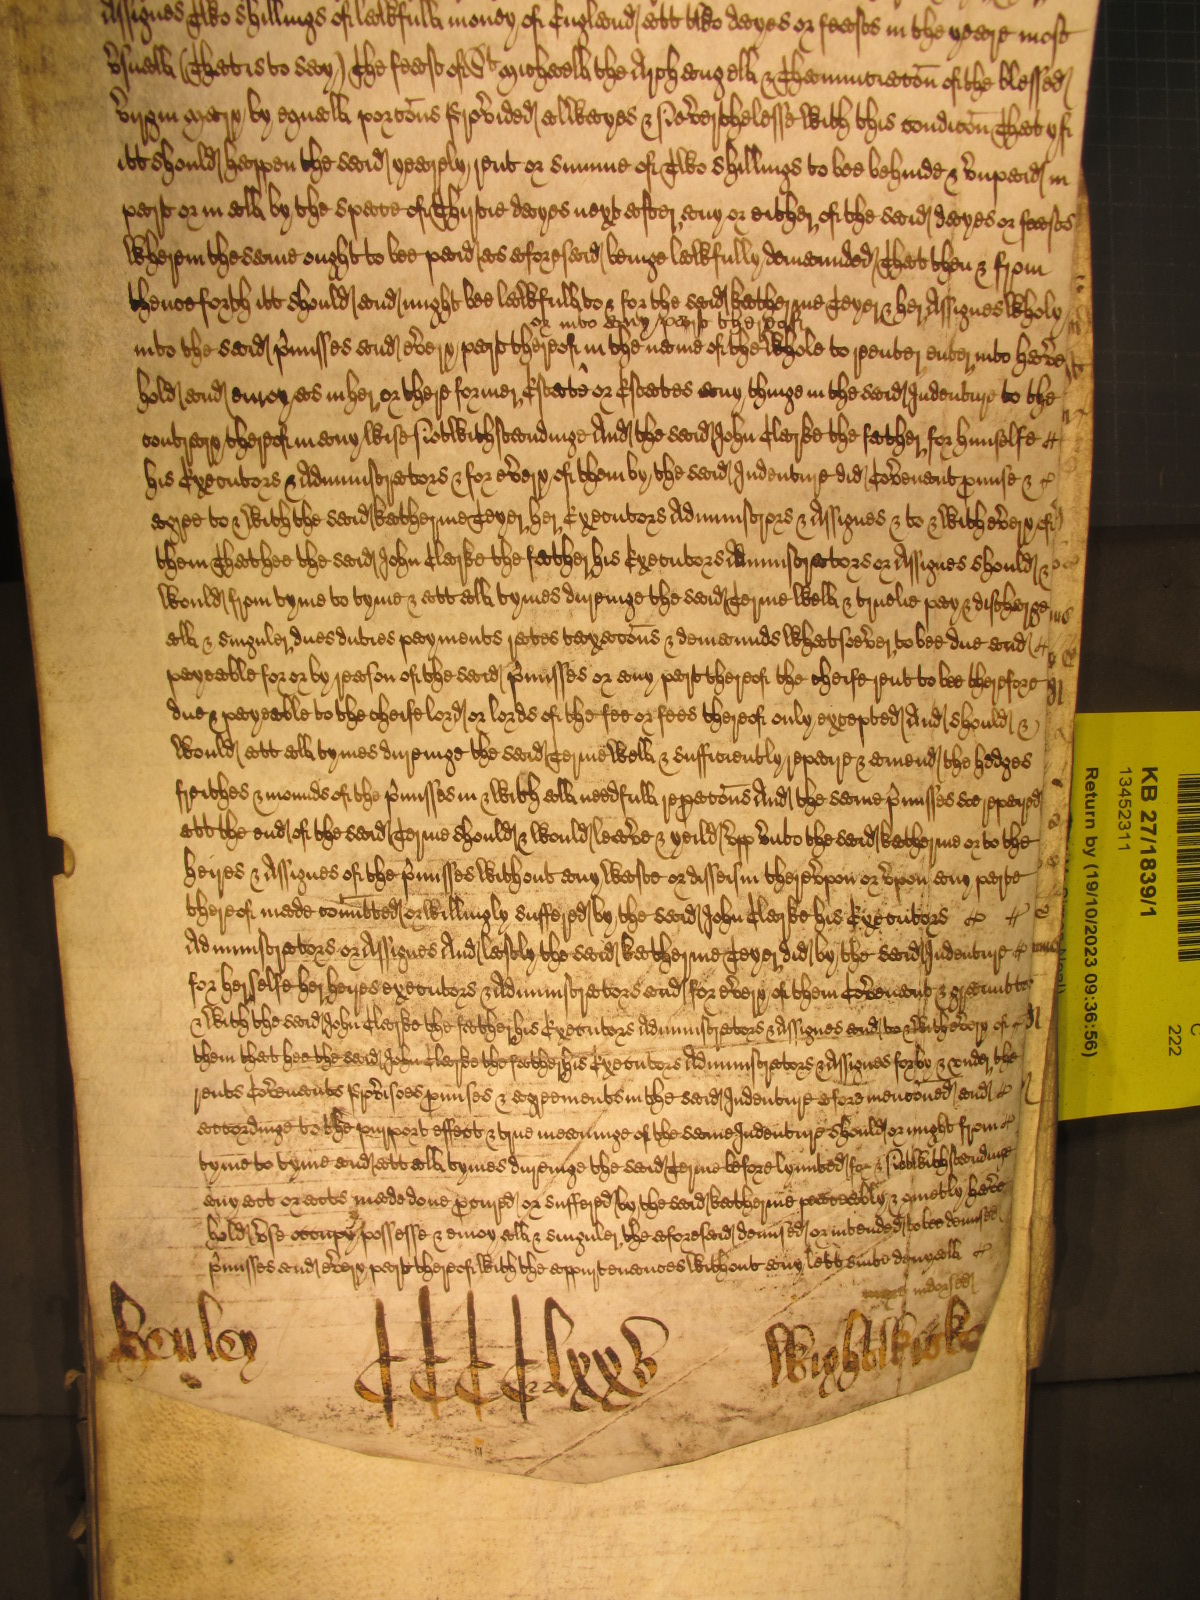 Assignes Two shillings of lawfull money of England att two dayes or feasts in the yeare most
vsuall (That is to say) The feast of St Michaell the Archangell & Thannunciacōn of the blessed
virgin Mary by equall porcōns Provided alwayes & Neverthelesse with this condicōn That yf
itt should happen the said yearely rent or summe of Two shillings to bee behinde & vnpaid in
part or in all by the space of Thirtie dayes next after any or either of the said dayes or feasts
wherein the same ought to bee paid as aforesaid beinge lawfully demaunded That then & from
thenceforth itt should and might bee lawfull to & for the said Katherine Teyer & her Assignes wholy
or into any part thereof
into the said p̄misses and every part thereof in the name of the whole to reenter enter into have
hold and enioy as in her or there former Estate or Estates any thinge in the said Indenture to the
contrary thereof in any wise Notwithstandinge And the said John Clarke the father for himselfe
his Executors & Administrators & for every of them by the said Indenture did Covenant p̱mise &
agree to & with the said Katherine Teyer her Executors Administrors & Assignes & to & with every of
them That hee the said John Clarke the father his Executors Administrators or Assignes should &
would from tyme to tyme & att all tymes duringe the said Terme well & truelie pay & discharge
all & singuler dues duties payments rates taxacōns & demaunds whatsoever to bee due and
payeable for or by reason of the said p̄misses or any part thereof the cheife rent to bee therefore
due & payeable to the cheife lord or lords of the fee or fees thereof only excepted And should &
would att all tymes duringe the said Terme well & sufficiently repaire & amend the hedges
freithes & mounds of the p̄misses in & with all needfull repacōns And the same p̄misses soe repaired
att the end of the said Terme should & would leave & yeild vpp vnto the said Katherine or to the
heires & Assignes of the p̄misses without any waste or disseisin therevpon or vpon any parte
thereof made com̄itted or willingly suffered by the said John Clarke his Executors
Administrators or Assignes And lastly the said Katherine Teyer did by the said Indenture
for herselfe her heires executors & Administrators and for every of them Covenant & graunt to
& with the said John Clarke the father his Executors Administrators & Assignes and to & with every of
them that hee the said John Clarke the father his Executors Administrators & Assignes for by & vnder the
rents Covenants p̱visoes p̱mises & agreements in the said Indenture afore mencōned and
accordinge to the purport effect & true meaninge of the same Indenture should or might from
tyme to tyme and att all tymes duringe the said Terme before lymited for & Notwithstandinge
any act or acts made done p̱cured or suffered by the said Katherine peaceably & quietly have
hold vse occupy possesse & enioy all & singuler the aforesaid demised or intended to bee demised
p̄misses and every part thereof with the appurtenances without any lett suite denyall
indorsed
Benley CCCClxxv Wightwicke
KB 27/1839/1
13452311
Return by (19/10/2023 09:36:56)
222